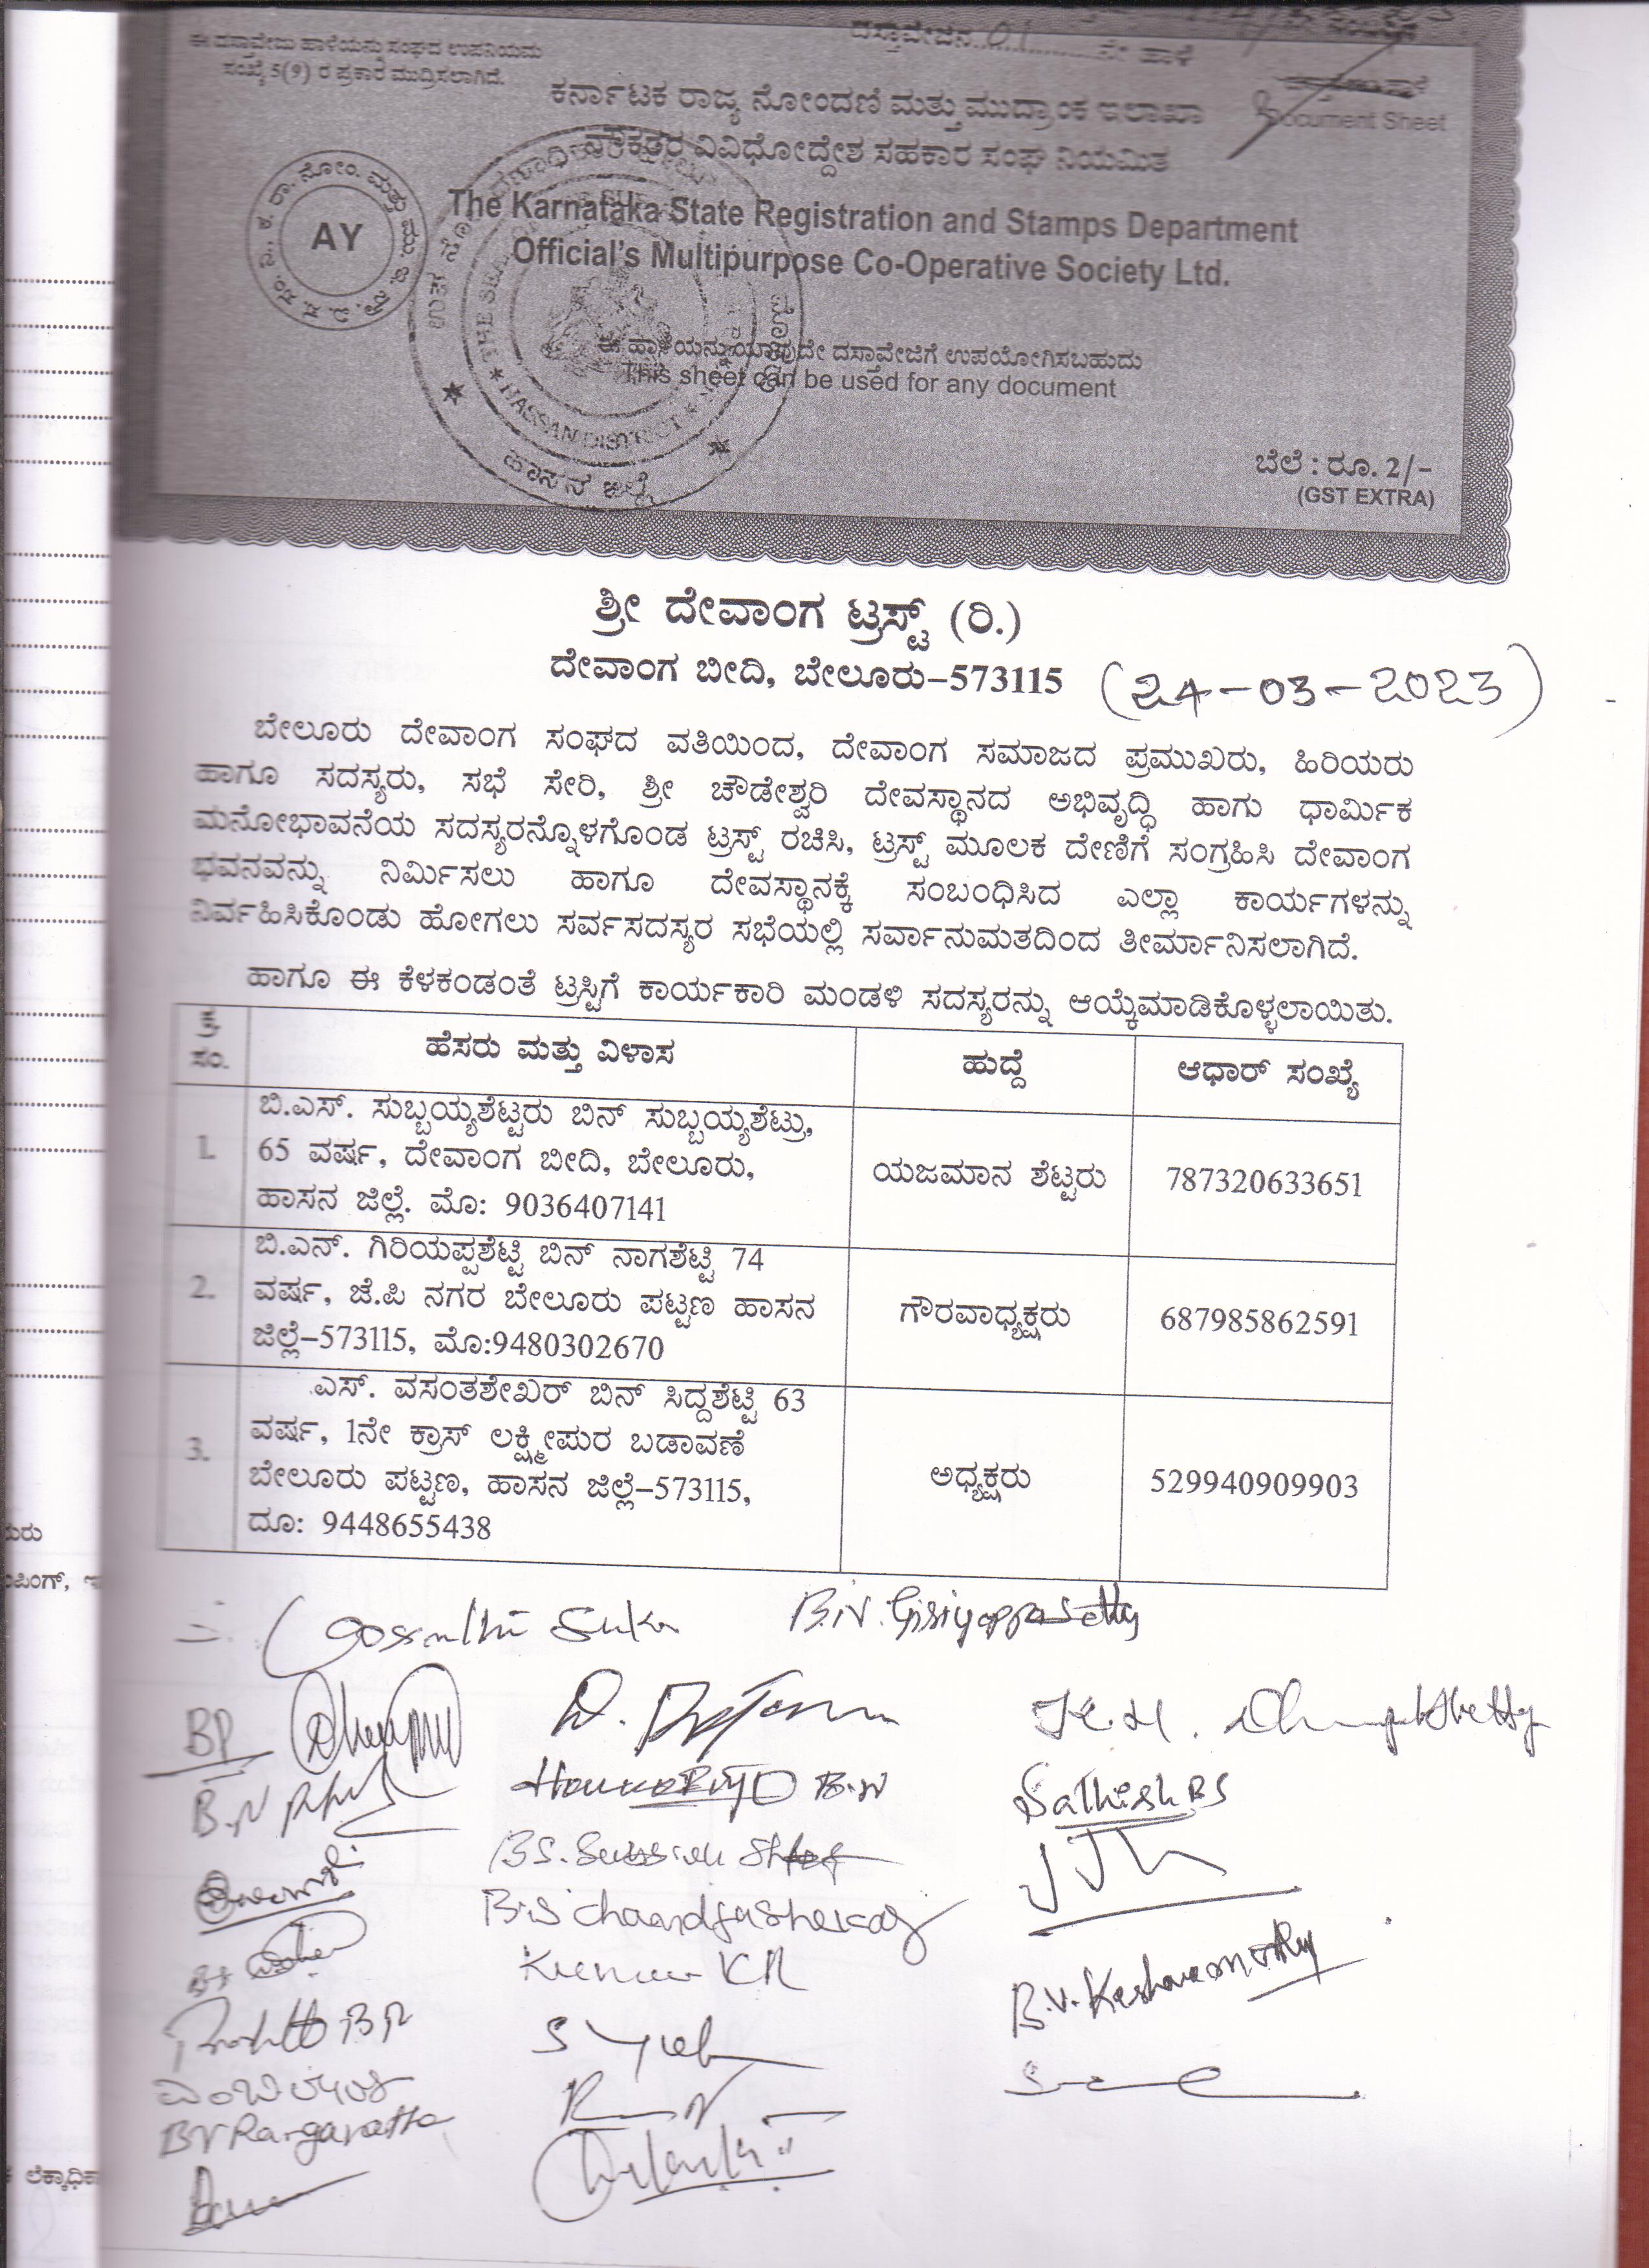 ದಸ್ತಾವೇಜಿನ 01 ನೇ ಹಾಳೆ
ಈ ದಸ್ತಾವೇಜು ಹಾಳೆಯನ್ನು ಸಂಘದ ಉಪನಿಯಮ
ಸಂಖ್ಯೆ 5(9) ರ ಪ್ರಕಾರ ಮುದ್ರಿಸಲಾಗಿದೆ.
Document Sheet
ಕರ್ನಾಟಕ ರಾಜ್ಯ ನೋಂದಣಿ ಮತ್ತು ಮುದ್ರಾಂಕ ಇಲಾಖಾ
ನೌಕರರ ವಿವಿಧೋದ್ದೇಶ ಸಹಕಾರ ಸಂಘ ನಿಯಮಿತ
AY
The Karnataka State Registration and Stamps Department
Official's Multipurpose Co-Operative Society Ltd.
ಈ ಹಾಳೆಯನ್ನು ಯಾವುದೇ ದಸ್ತಾವೇಜಿಗೆ ಉಪಯೋಗಿಸಬಹುದು
This sheet can be used for any document
HASSAN DISTRICT
ಹಾಸನ ಜಿಲ್ಲೆ
ಬೆಲೆ : ರೂ. 2/-
(GST EXTRA)
ಶ್ರೀ ದೇವಾಂಗ ಟ್ರಸ್ಟ್ (ರಿ.)
ದೇವಾಂಗ ಬೀದಿ, ಬೇಲೂರು-573115 (24-03-2023)
ಬೇಲೂರು ದೇವಾಂಗ ಸಂಘದ ವತಿಯಿಂದ, ದೇವಾಂಗ ಸಮಾಜದ ಪ್ರಮುಖರು, ಹಿರಿಯರು
ಹಾಗೂ ಸದಸ್ಯರು, ಸಭೆ ಸೇರಿ, ಶ್ರೀ ಚೌಡೇಶ್ವರಿ ದೇವಸ್ಥಾನದ ಅಭಿವೃದ್ಧಿ ಹಾಗು ಧಾರ್ಮಿಕ
ಮನೋಭಾವನೆಯ ಸದಸ್ಯರನ್ನೊಳಗೊಂಡ ಟ್ರಸ್ಟ್ ರಚಿಸಿ, ಟ್ರಸ್ಟ್ ಮೂಲಕ ದೇಣಿಗೆ ಸಂಗ್ರಹಿಸಿ ದೇವಾಂಗ
ಭವನವನ್ನು ನಿರ್ಮಿಸಲು ಹಾಗೂ ದೇವಸ್ಥಾನಕ್ಕೆ ಸಂಬಂಧಿಸಿದ ಎಲ್ಲಾ ಕಾರ್ಯಗಳನ್ನು
ನಿರ್ವಹಿಸಿಕೊಂಡು ಹೋಗಲು ಸರ್ವಸದಸ್ಯರ ಸಭೆಯಲ್ಲಿ ಸರ್ವಾನುಮತದಿಂದ ತೀರ್ಮಾನಿಸಲಾಗಿದೆ.
ಹಾಗೂ ಈ ಕೆಳಕಂಡಂತೆ ಟ್ರಸ್ಟಿಗೆ ಕಾರ್ಯಕಾರಿ ಮಂಡಳಿ ಸದಸ್ಯರನ್ನು ಆಯ್ಕೆಮಾಡಿಕೊಳ್ಳಲಾಯಿತು.
ಕ್ರ. ಸಂ. ಹೆಸರು ಮತ್ತು ವಿಳಾಸ ಹುದ್ದೆ ಆಧಾರ್ ಸಂಖ್ಯೆ
ಬಿ.ಎಸ್. ಸುಬ್ಬಯ್ಯಶೆಟ್ಟರು ಬಿನ್ ಸುಬ್ಬಯ್ಯಶೆಟ್ರು,
1. 65 ವರ್ಷ, ದೇವಾಂಗ ಬೀದಿ, ಬೇಲೂರು, ಯಜಮಾನ ಶೆಟ್ಟರು 787320633651
ಹಾಸನ ಜಿಲ್ಲೆ. ಮೊ: 9036407141
ಬಿ.ಎನ್. ಗಿರಿಯಪ್ಪಶೆಟ್ಟಿ ಬಿನ್ ನಾಗಶೆಟ್ಟಿ 74
2. ವರ್ಷ, ಜೆ.ಪಿ ನಗರ ಬೇಲೂರು ಪಟ್ಟಣ ಹಾಸನ ಗೌರವಾಧ್ಯಕ್ಷರು 687985862591
ಜಿಲ್ಲೆ-573115, ಮೊ:9480302670
ಎಸ್. ವಸಂತಶೇಖರ್ ಬಿನ್ ಸಿದ್ದಶೆಟ್ಟಿ 63
ವರ್ಷ, 1ನೇ ಕ್ರಾಸ್ ಲಕ್ಷ್ಮೀಪುರ ಬಡಾವಣೆ
3. ಬೇಲೂರು ಪಟ್ಟಣ, ಹಾಸನ ಜಿಲ್ಲೆ-573115, ಅಧ್ಯಕ್ಷರು 529940909903
ದೂ: 9448655438
B.N. Giriyappasetty
BP
B.N
B.N
Sathish BS
B.S. Subbiah
B.S chandrashekar
Kumar KR
B.V. Keshavamurthy
BR
BV Ranganatha